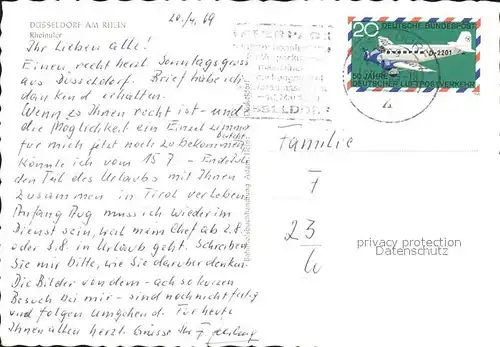 DÜSSELDORF AM RHEIN
Rheinufer
20./4. 69
Ihr Lieben alle!
Einen recht herzl. Sonntagsgruss
aus Düsseldorf. Brief habe ich
dankend erhalten.
Wenn es Ihnen recht ist - und
die Möglichkeit ein Einzelzimmer
für mich jetzt noch zu bekommen besteht
könnte ich vom 15.7 - Ende Juli
den Teil des Urlaubs mit Ihnen
zusammen in Tirol verleben.
Anfang Aug muss ich wieder im
Dienst sein, weil mein Chef ab 2.8.
oder 3.8. in Urlaub geht. Schreiben
Sie mir bitte, wie Sie darüber denken.
Die Bilder von dem - ach so kurzen
Besuch bei mir - sind noch nicht fertig
und folgen umgehend. Für heute
Ihnen allen herzl. Grüsse Ihr F
20
DEUTSCHE BUNDESPOST
D-2201
50 JAHRE
DEUTSCHER LUFTPOSTVERKEHR
Familie
F
23
W
privacy protection
(DatenschutzGDPR)